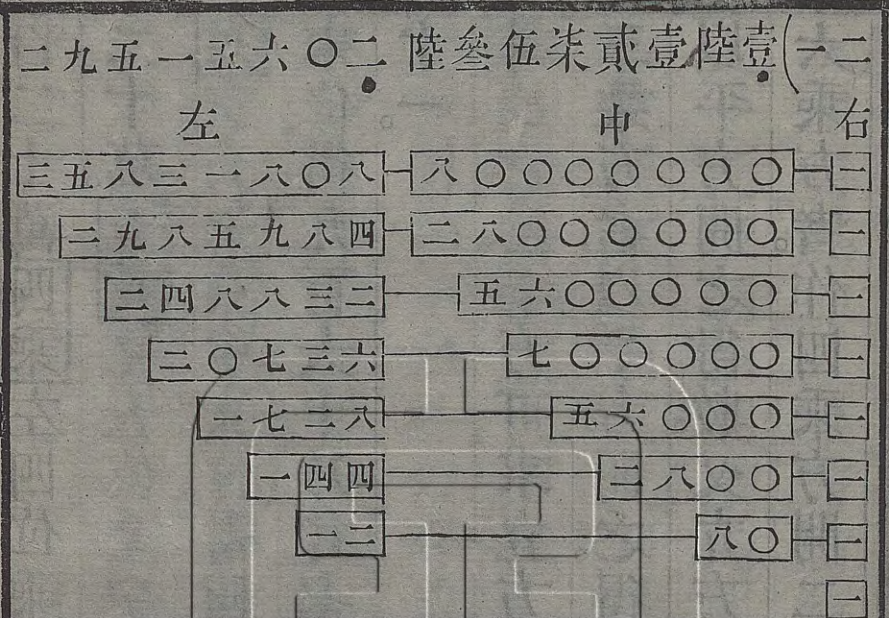 二九五一五六〇二 陸叄伍柒貳壹陸壹(一二
左 中 右
三五八三一八〇八 八〇〇〇〇〇〇〇 一
二九八五九八四 二八〇〇〇〇〇〇 一
二四八八三二 五六〇〇〇〇〇 一
二〇七三六 七〇〇〇〇〇 一
一七二八 五六〇〇〇 一
一四四 二八〇〇 一
一二 八〇 一
一